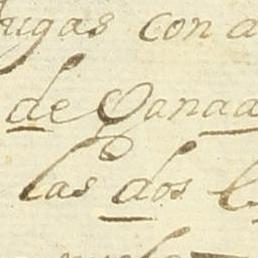 ugas con a
de Ganad
las dos l